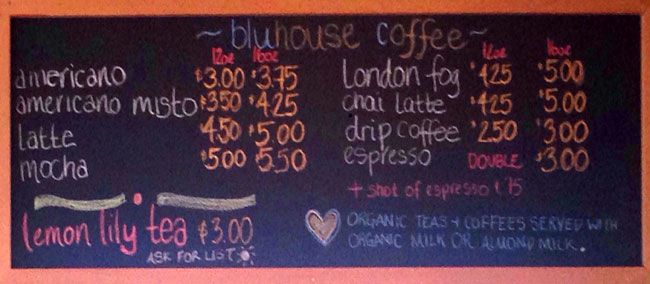 ~ bluhouse coffee ~
12oz 16oz
americano $3.00 $3.75
americano misto $3.50 $4.25
latte $4.50 $5.00
mocha $5.00 $5.50
12oz 16oz
london fog $4.25 $5.00
chai latte $4.25 $5.00
drip coffee $2.50 $3.00
espresso DOUBLE $3.00
+ shot of espresso $.75
lemon lily tea $3.00
ASK FOR LIST
ORGANIC TEAS + COFFEES SERVED WITH
ORGANIC MILK OR ALMOND MILK.